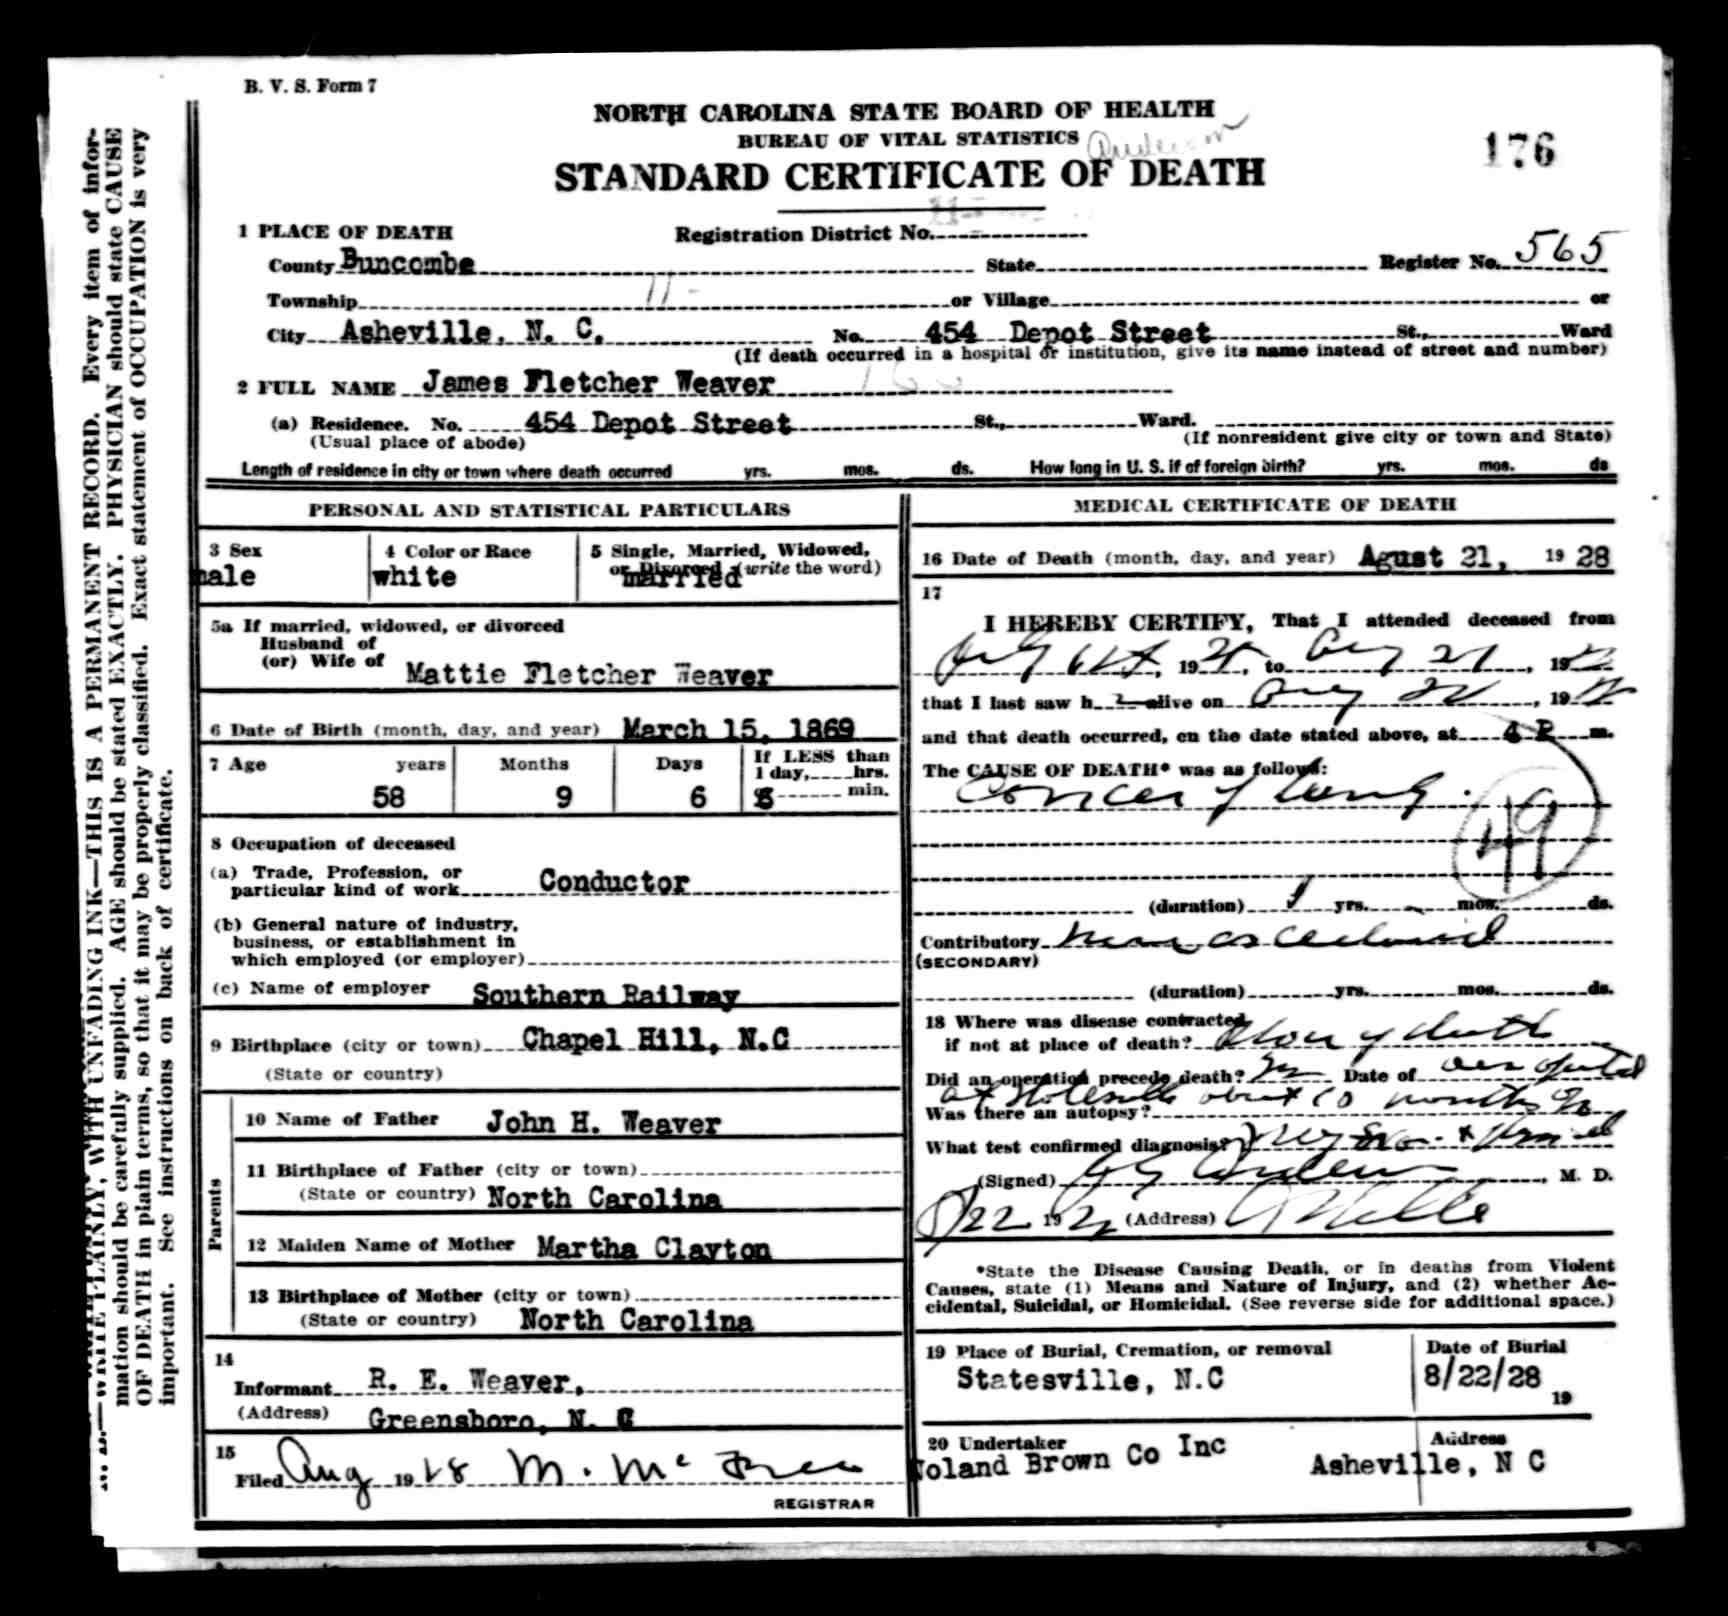 B. V. S. Form 7
NORTH CAROLINA STATE BOARD OF HEALTH
BUREAU OF VITAL STATISTICS
Anderson
STANDARD CERTIFICATE OF DEATH
176
1 PLACE OF DEATH Registration District No.
County Buncombe State Register No. 565
Township 11- or Village or
City Asheville, N. C. No. 454 Depot Street St., Ward
(If death occurred in a hospital or institution, give its name instead of street and number)
2 FULL NAME James Fletcher Weaver
(a) Residence. No. 454 Depot Street St., Ward.
(Usual place of abode) (If nonresident give city or town and State)
Length of residence in city or town where death occurred yrs. mos. ds. How long in U. S. if of foreign birth? yrs. mos. ds
PERSONAL AND STATISTICAL PARTICULARS
3 Sex 4 Color or Race 5 Single, Married, Widowed,
or Divorced (write the word)
male white married
5a If married, widowed, or divorced
Husband of
(or) Wife of Mattie Fletcher Weaver
6 Date of Birth (month, day, and year) March 15, 1869
7 Age years Months Days If LESS than
1 day, hrs.
58 9 6 min.
8 Occupation of deceased
(a) Trade, Profession, or
particular kind of work Conductor
(b) General nature of industry,
business, or establishment in
which employed (or employer)
(c) Name of employer Southern Railway
9 Birthplace (city or town) Chapel Hill, N.C
(State or country)
Parents
10 Name of Father John H. Weaver
11 Birthplace of Father (city or town)
(State or country) North Carolina
12 Maiden Name of Mother Martha Clayton
13 Birthplace of Mother (city or town)
(State or country) North Carolina
14
Informant R. E. Weaver,
(Address) Greensboro, N. C
15
Filed Aug 1928 M. Mc
REGISTRAR
MEDICAL CERTIFICATE OF DEATH
16 Date of Death (month, day, and year) Agust 21, 19 28
17
I HEREBY CERTIFY, That I attended deceased from
, 19 , to Aug 21, 19
that I last saw h alive on Aug , 19
and that death occurred, on the date stated above, at 4 P m.
The CAUSE OF DEATH* was as follows:
Cancer of Lung.
49
(duration) 1 yrs. mos. ds.
Contributory
(SECONDARY)
(duration) yrs. mos. ds.
18 Where was disease contracted
if not at place of death? Place of death
Did an operation precede death? Date of
at Statesville about 10 months
Was there an autopsy? No
What test confirmed diagnosis?
(Signed) , M. D.
8/22 192 (Address) Asheville
*State the Disease Causing Death, or in deaths from Violent
Causes, state (1) Means and Nature of Injury, and (2) whether Ac-
cidental, Suicidal, or Homicidal. (See reverse side for additional space.)
19 Place of Burial, Cremation, or removal Date of Burial
Statesville, N.C 8/22/28
19
20 Undertaker Address
Noland Brown Co Inc Asheville, N C
N. B.—WRITE PLAINLY, WITH UNFADING INK—THIS IS A PERMANENT RECORD. Every item of infor-
mation should be carefully supplied. AGE should be stated EXACTLY. PHYSICIAN should state CAUSE
OF DEATH in plain terms, so that it may be properly classified. Exact statement of OCCUPATION is very
important. See instructions on back of certificate.